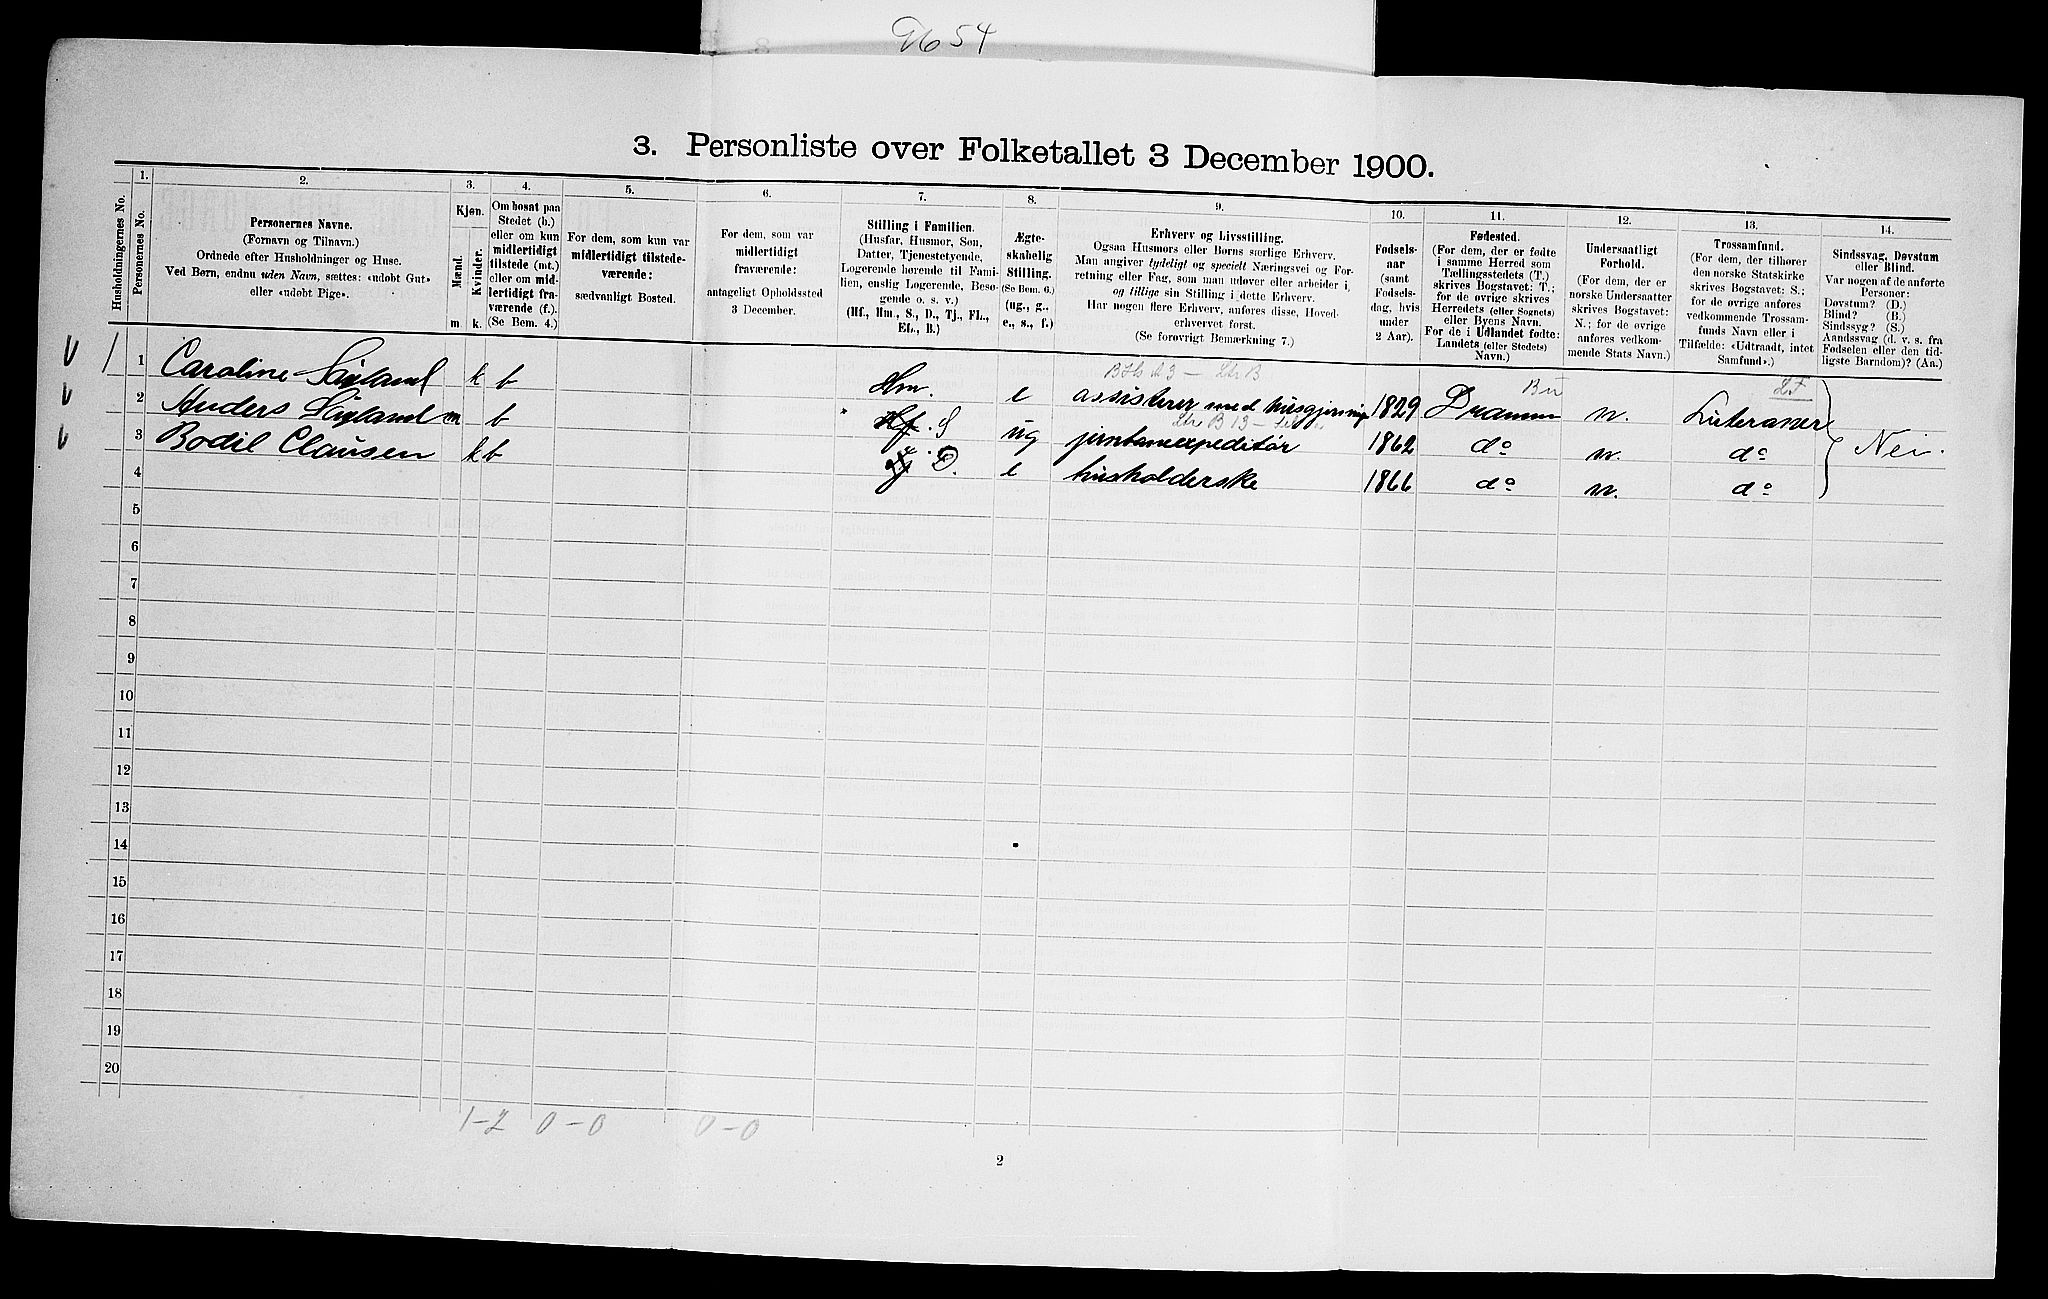 9654
3. Personliste over Folketallet 3 December 1900.
Husholdningernes No.
1.
Personernes No.
2.
Personernes Navne.
(Fornavn og Tilnavn.)
Ordnede efter Husholdninger og Huse.
Ved Børn, endnu uden Navn, sættes: «udøbt Gut»
eller «udøbt Pige».
3.
Kjøn.
Mænd.
Kvinder.
m.
k.
4.
Om bosat paa
Stedet (b.)
eller om kun
midlertidigt
tilstede (mt.)
eller om mid-
lertidigt fra-
værende (f.).
(Se Bem. 4.)
5.
For dem, som kun var
midlertidigt tilstede-
værende:
sædvanligt Bosted.
6.
For dem, som var
midlertidigt
fraværende:
antageligt Opholdssted
3 December.
7.
Stilling i Familien.
(Husfar, Husmor, Søn,
Datter, Tjenestetyende,
Logerende hørende til Fami-
lien, enslig Logerende, Besø-
gende o. s. v.)
(Hf., Hm., S., D., Tj., FL.,
EL., B.)
8.
Ægte-
skabelig
Stilling.
(Se Bem. 6.)
(ug., g.,
e., s., f.)
9.
Erhverv og Livsstilling.
Ogsaa Husmors eller Børns særlige Erhverv.
Man angiver tydeligt og specielt Næringsvei og For-
retning eller Fag, som man udøver eller arbeider i,
og tillige sin Stilling i dette Erhverv.
Har nogen flere Erhverv, anføres disse, Hoved-
erhvervet først.
(Se forøvrigt Bemærkning 7.)
10.
Fødsels-
aar
(samt
Fødsels-
dag, hvis
under
2 Aar).
11.
Fødested.
(For dem, der er fødte
i samme Herred som
Tællingsstedets (T.)
skrives Bogstavet: T.;
for de øvrige skrives
Herredets (eller Sognets)
eller Byens Navn.
For de i Udlandet fødte:
Landets (eller Stedets)
Navn.)
12.
Undersaatligt
Forhold.
(For dem, der er
norske Undersaatter
skrives Bogstavet:
N.; for de øvrige
anføres vedkom-
mende Stats Navn.)
13.
Trossamfund.
(For dem, der tilhører
den norske Statskirke
skrives Bogstavet: S.;
for de øvrige anføres
vedkommende Trossam-
funds Navn eller i
Tilfælde: «Udtraadt, intet
Samfund».)
14.
Sindssvag, Døvstum
eller Blind.
Var nogen af de anførte
Personer:
Døvstum? (D.)
Blind? (B.)
Sindssyg? (S.)
Aandssvag (d. v. s. fra
Fødselen eller den tid-
ligste Barndom)? (Aa.)
1 1 Caroline k b Hm. e assisterer med husgjerning 1829 Drammen n. Luteraner
2 Anders m b Hf. S ug jernbaneexpeditør 1862 do n. do Nei.
3 Bodil Clausen k b D. e husholderske 1866 do n. do
4
5
6
7
8
9
10
11
12
13
14
15
16
17
18
19
20
1-2 0-0 0-0
2